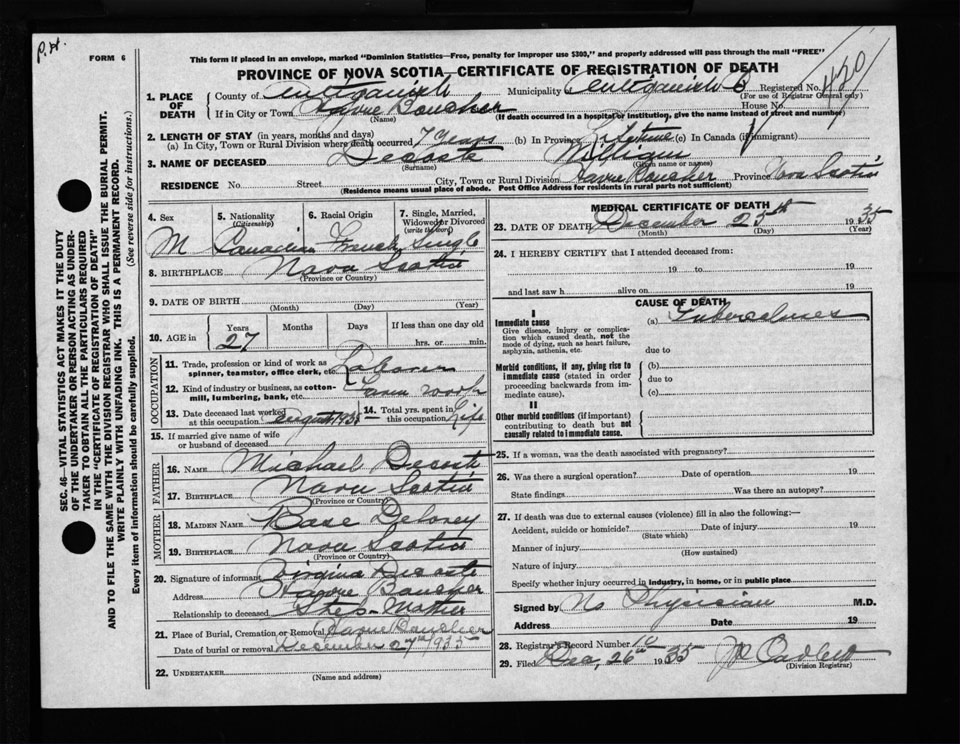 P.H.
FORM 6
This form if placed in an envelope, marked "Dominion Statistics—Free, penalty for improper use $300," and properly addressed will pass through the mail "FREE"
PROVINCE OF NOVA SCOTIA—CERTIFICATE OF REGISTRATION OF DEATH
1. PLACE OF DEATH
County of Antigonish Municipality of Antigonish Registered No.
(For use of Registrar General only)
If in City or Town Havre Boucher House No.
(Name) (If death occurred in a hospital or institution, give the name instead of street and number)
2. LENGTH OF STAY (in years, months and days)
(a) In City, Town or Rural Division where death occurred 7 years (b) In Province Lifetime (c) In Canada (if immigrant)
3. NAME OF DECEASED Decoste William
(Surname) (Given name or names)
RESIDENCE No. Street City, Town or Rural Division Havre Boucher Province Nova Scotia
(Residence means usual place of abode. Post Office Address for residents in rural parts not sufficient)
4. Sex M
5. Nationality (Citizenship) Canadian
6. Racial Origin French
7. Single, Married, Widowed or Divorced (write the word) Single
8. BIRTHPLACE Nova Scotia
(Province or Country)
9. DATE OF BIRTH
(Month) (Day) (Year)
10. AGE in Years Months Days If less than one day old
27 hrs. or min.
OCCUPATION
11. Trade, profession or kind of work as spinner, teamster, office clerk, etc. Laborer
12. Kind of industry or business, as cotton-mill, lumbering, bank, etc. Farm work
13. Date deceased last worked at this occupation August 1935
14. Total yrs. spent in this occupation Life
15. If married give name of wife or husband of deceased
FATHER
16. NAME Michael Decoste
17. BIRTHPLACE Nova Scotia
(Province or Country)
MOTHER
18. MAIDEN NAME Delorey
19. BIRTHPLACE Nova Scotia
(Province or Country)
20. Signature of informant Virgina Decoste
Address Havre Boucher
Relationship to deceased Step-Mother
21. Place of Burial, Cremation or Removal Havre Boucher
Date of burial or removal December 27th 1935
22. UNDERTAKER
(Name and address)
MEDICAL CERTIFICATE OF DEATH
23. DATE OF DEATH December 25th 1935
(Month) (Day) (Year)
24. I HEREBY CERTIFY that I attended deceased from:
19 to 19
and last saw h alive on 19
CAUSE OF DEATH
I
Immediate cause
Give disease, injury or complication which caused death, not the mode of dying, such as heart failure, asphyxia, asthenia, etc.
(a) Tuberculoses
due to
Morbid conditions, if any, giving rise to immediate cause (stated in order proceeding backwards from immediate cause).
(b)
due to
(c)
II
Other morbid conditions (if important) contributing to death but not causally related to immediate cause.
25. If a woman, was the death associated with pregnancy?
26. Was there a surgical operation? Date of operation 19
State findings Was there an autopsy?
27. If death was due to external causes (violence) fill in also the following:—
Accident, suicide or homicide? Date of injury 19
(State which)
Manner of injury
(How sustained)
Nature of injury
Specify whether injury occurred in industry, in home, or in public place
Signed by No Physician M.D.
Address Date 19
28. Registrar's Record Number 10
29. Filed Dec, 26th 1935
(Division Registrar)
SEC. 46—VITAL STATISTICS ACT MAKES IT THE DUTY
OF THE UNDERTAKER OR PERSON ACTING AS UNDER-
TAKER TO OBTAIN ALL THE PARTICULARS REQUIRED
IN THE "CERTIFICATE OF REGISTRATION OF DEATH"
AND TO FILE THE SAME WITH THE DIVISION REGISTRAR WHO SHALL ISSUE THE BURIAL PERMIT.
WRITE PLAINLY WITH UNFADING INK. THIS IS A PERMANENT RECORD.
Every item of information should be carefully supplied. (See reverse side for instructions.)